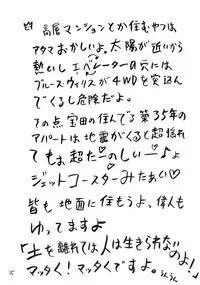 高層マンションとか住むやつは
アタマおかしいよ。太陽が近いから
熱いしエベレーターの穴には
ブルース・ウィリスが4WDを突込ん
でくるし危険だよ。
その点宝田の住んでる築35年の
アパートは地震がくると超揺れ
てもぉ超たーのしぃー♪♪
ジェットコースターみたぁい♡
皆も地面に住もうよ、偉人も
ゆってますよ
「土を離れては人は生きられないのよ!」
マッタく!マッタくですよ。うんうん
15